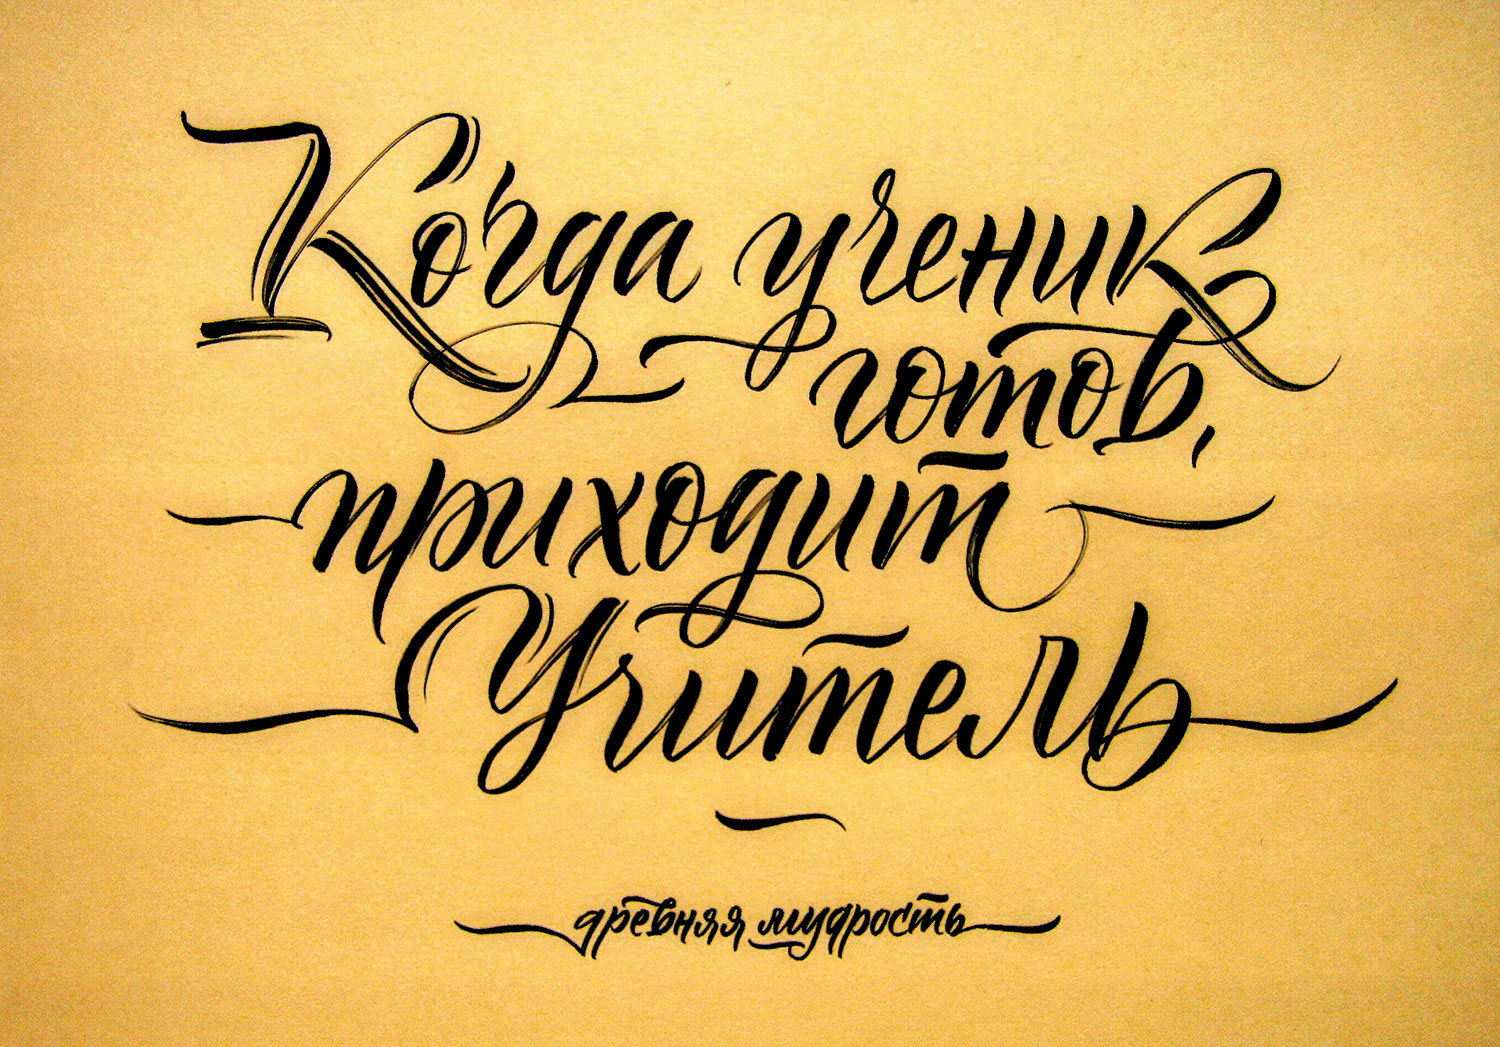 Когда ученик
готов,
приходит
Учитель
древняя мудрость